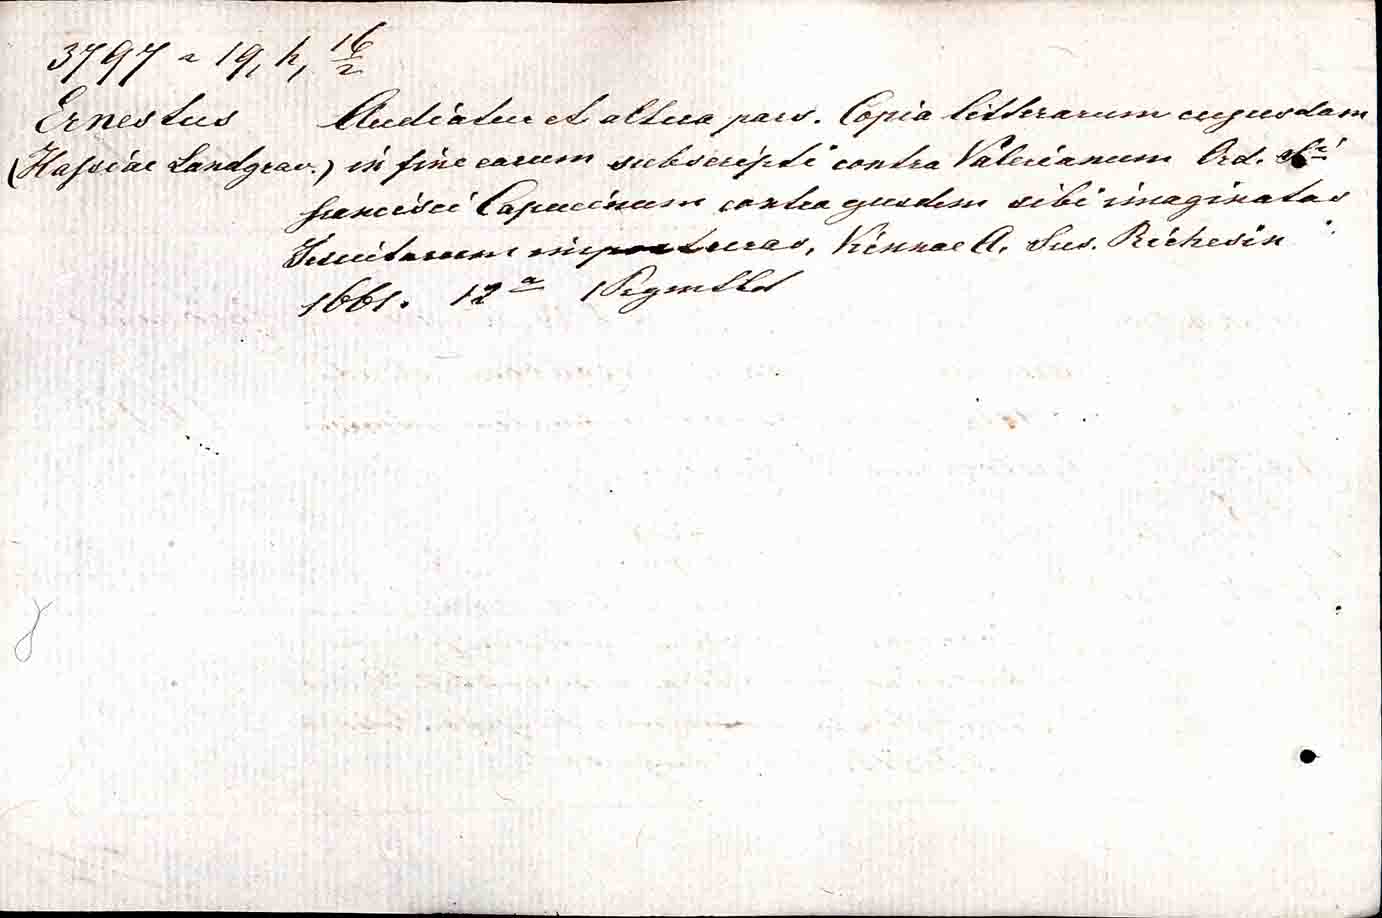 3797 a 19, h, 16/2
Ernestus Audiatur et altera pars. Copia litterarum cujusdam
(Hassiae Landgrav.) in fine earum subscripti contra Valerianum Ord. Sti
Francisci Capucinum contra ejusdem sibi imaginatas
Jesuitarum imposturas, Viennae A. Sus. Richesin
1661. 12° 1 Prgmtbd